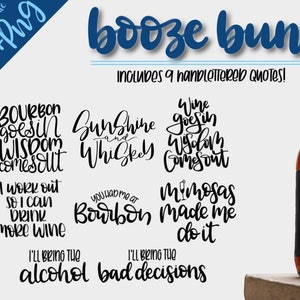 booze bun
INCLUDES 9 HANDLETTERED QUOTES!
BOURBON
goes in
WISDOM
comes out
SunShine
and
WhiSkey
Wine
goes in
Wisdom
Comes out!
I WORK OUT
SO I CAN
DRINK
MORE WINE
YOU HAD ME AT
Bourbon
mimosas
made me
do it
I'LL BRING THE
alcohol
I'LL BRING THE
bad decisions